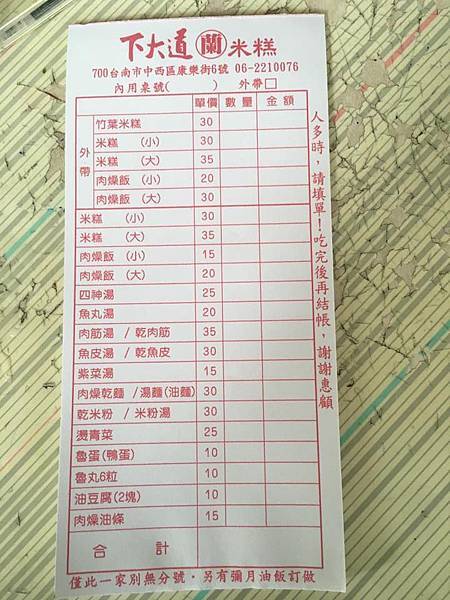 下大道 蘭 米糕
700台南市中西區康樂街6號 06-2210076
內用桌號( ) 外帶□
單價 數量 金額
外帶
竹葉米糕 30
米糕 (小) 30
米糕 (大) 35
肉燥飯 (小) 20
肉燥飯 (大) 30
米糕 (小) 30
米糕 (大) 35
肉燥飯 (小) 15
肉燥飯 (大) 20
四神湯 25
魚丸湯 20
肉筋湯 / 乾肉筋 35
魚皮湯 / 乾魚皮 30
紫菜湯 15
肉燥乾麵 /湯麵(油麵) 30
乾米粉 / 米粉湯 30
燙青菜 25
魯蛋(鴨蛋) 10
魯丸6粒 10
油豆腐(2塊) 10
肉燥油條 15
合計
人多時,請填單!吃完後再結帳,謝謝惠顧
僅此一家別無分號,另有彌月油飯訂做